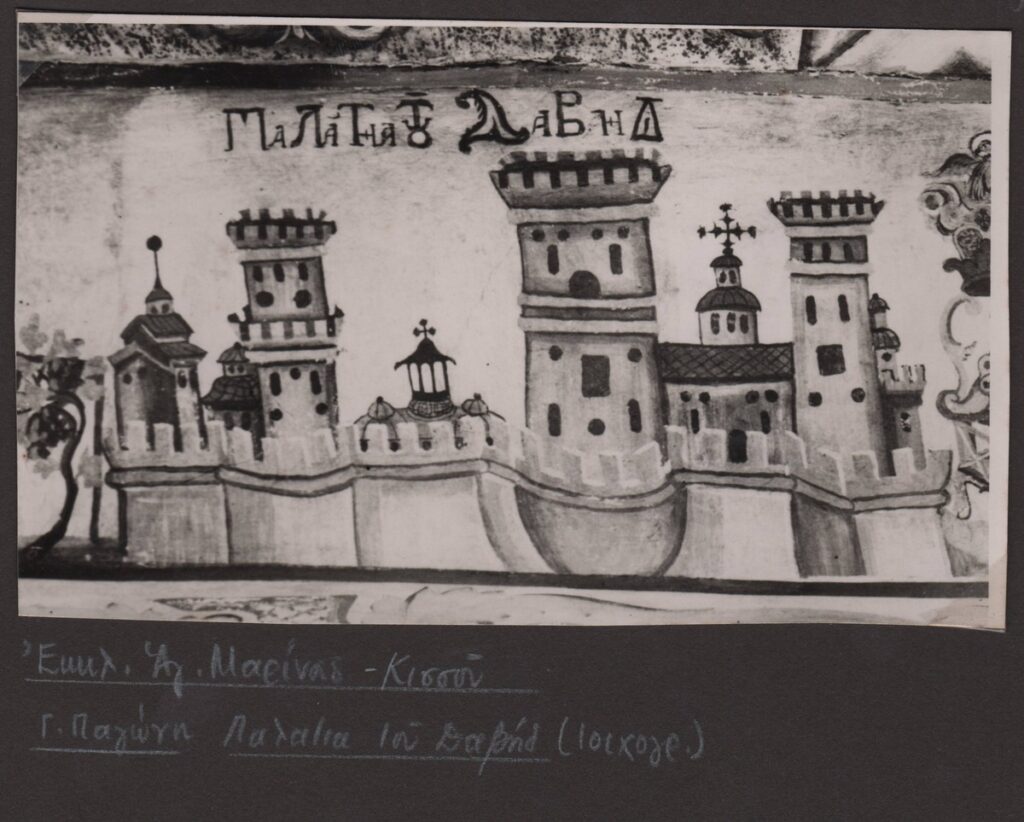 ΠαΛάΤηατȣ ΔαΒηΔ
Ἐκκλ. Ἁγ. Μαρίνας - Κισσοῦ
Γ. Παγώνη Παλάτια τοῦ Δαβίδ (τοιχογρ.)